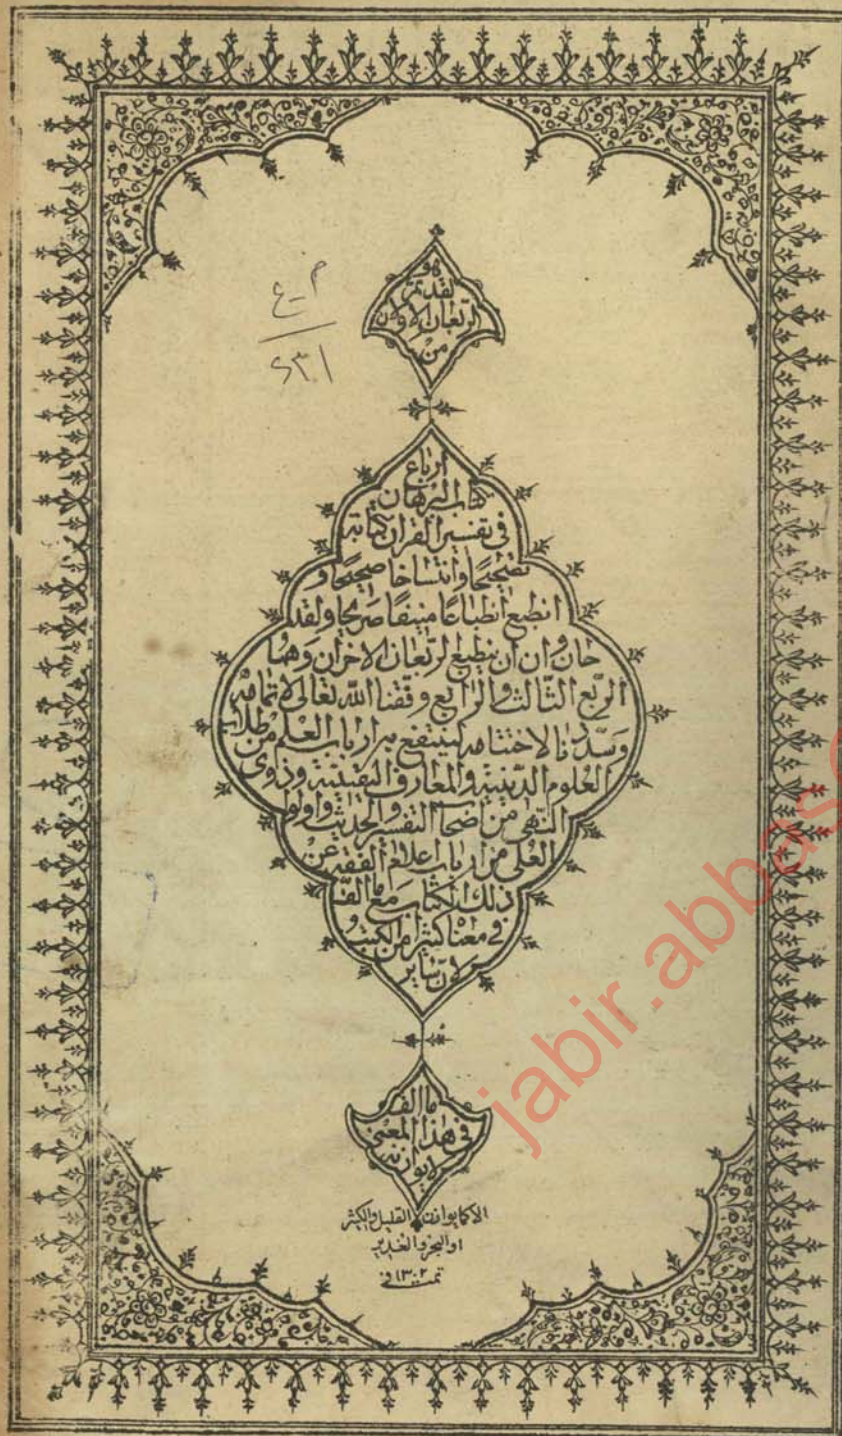 هو
لقد تم
الربعان الاولان
من
ارباع
كتاب البرهان
فى تفسير القران كتابة
تصحيحا وانتساخا صحيحا و
انطبع انطباعا منيفا صريحا ولقد
حان وان ان ينطبع الربعان الاخران وهما
الربع الثالث والرابع وفقنا الله تعالى لاتمامه
وسددنا لاختتامه لينتفع به ارباب العلم من طلاب
العلوم الدينية والمعارف اليقينية وذوى
النهى من اصحاب التفسير والحديث واولو
العلى من ارباب اعلام الفقه عن
ذلك الكتاب مع ما الف
فى معناه كثيرا من الكتب و
لان ساير
ما الف
فى هذا المعنى
لا يوازنه
الا كما يوازن القليل والكثير
او البحر والغدير
تمت فى ١٣٠٢
م-ع
٤٣١
jabir.abbas